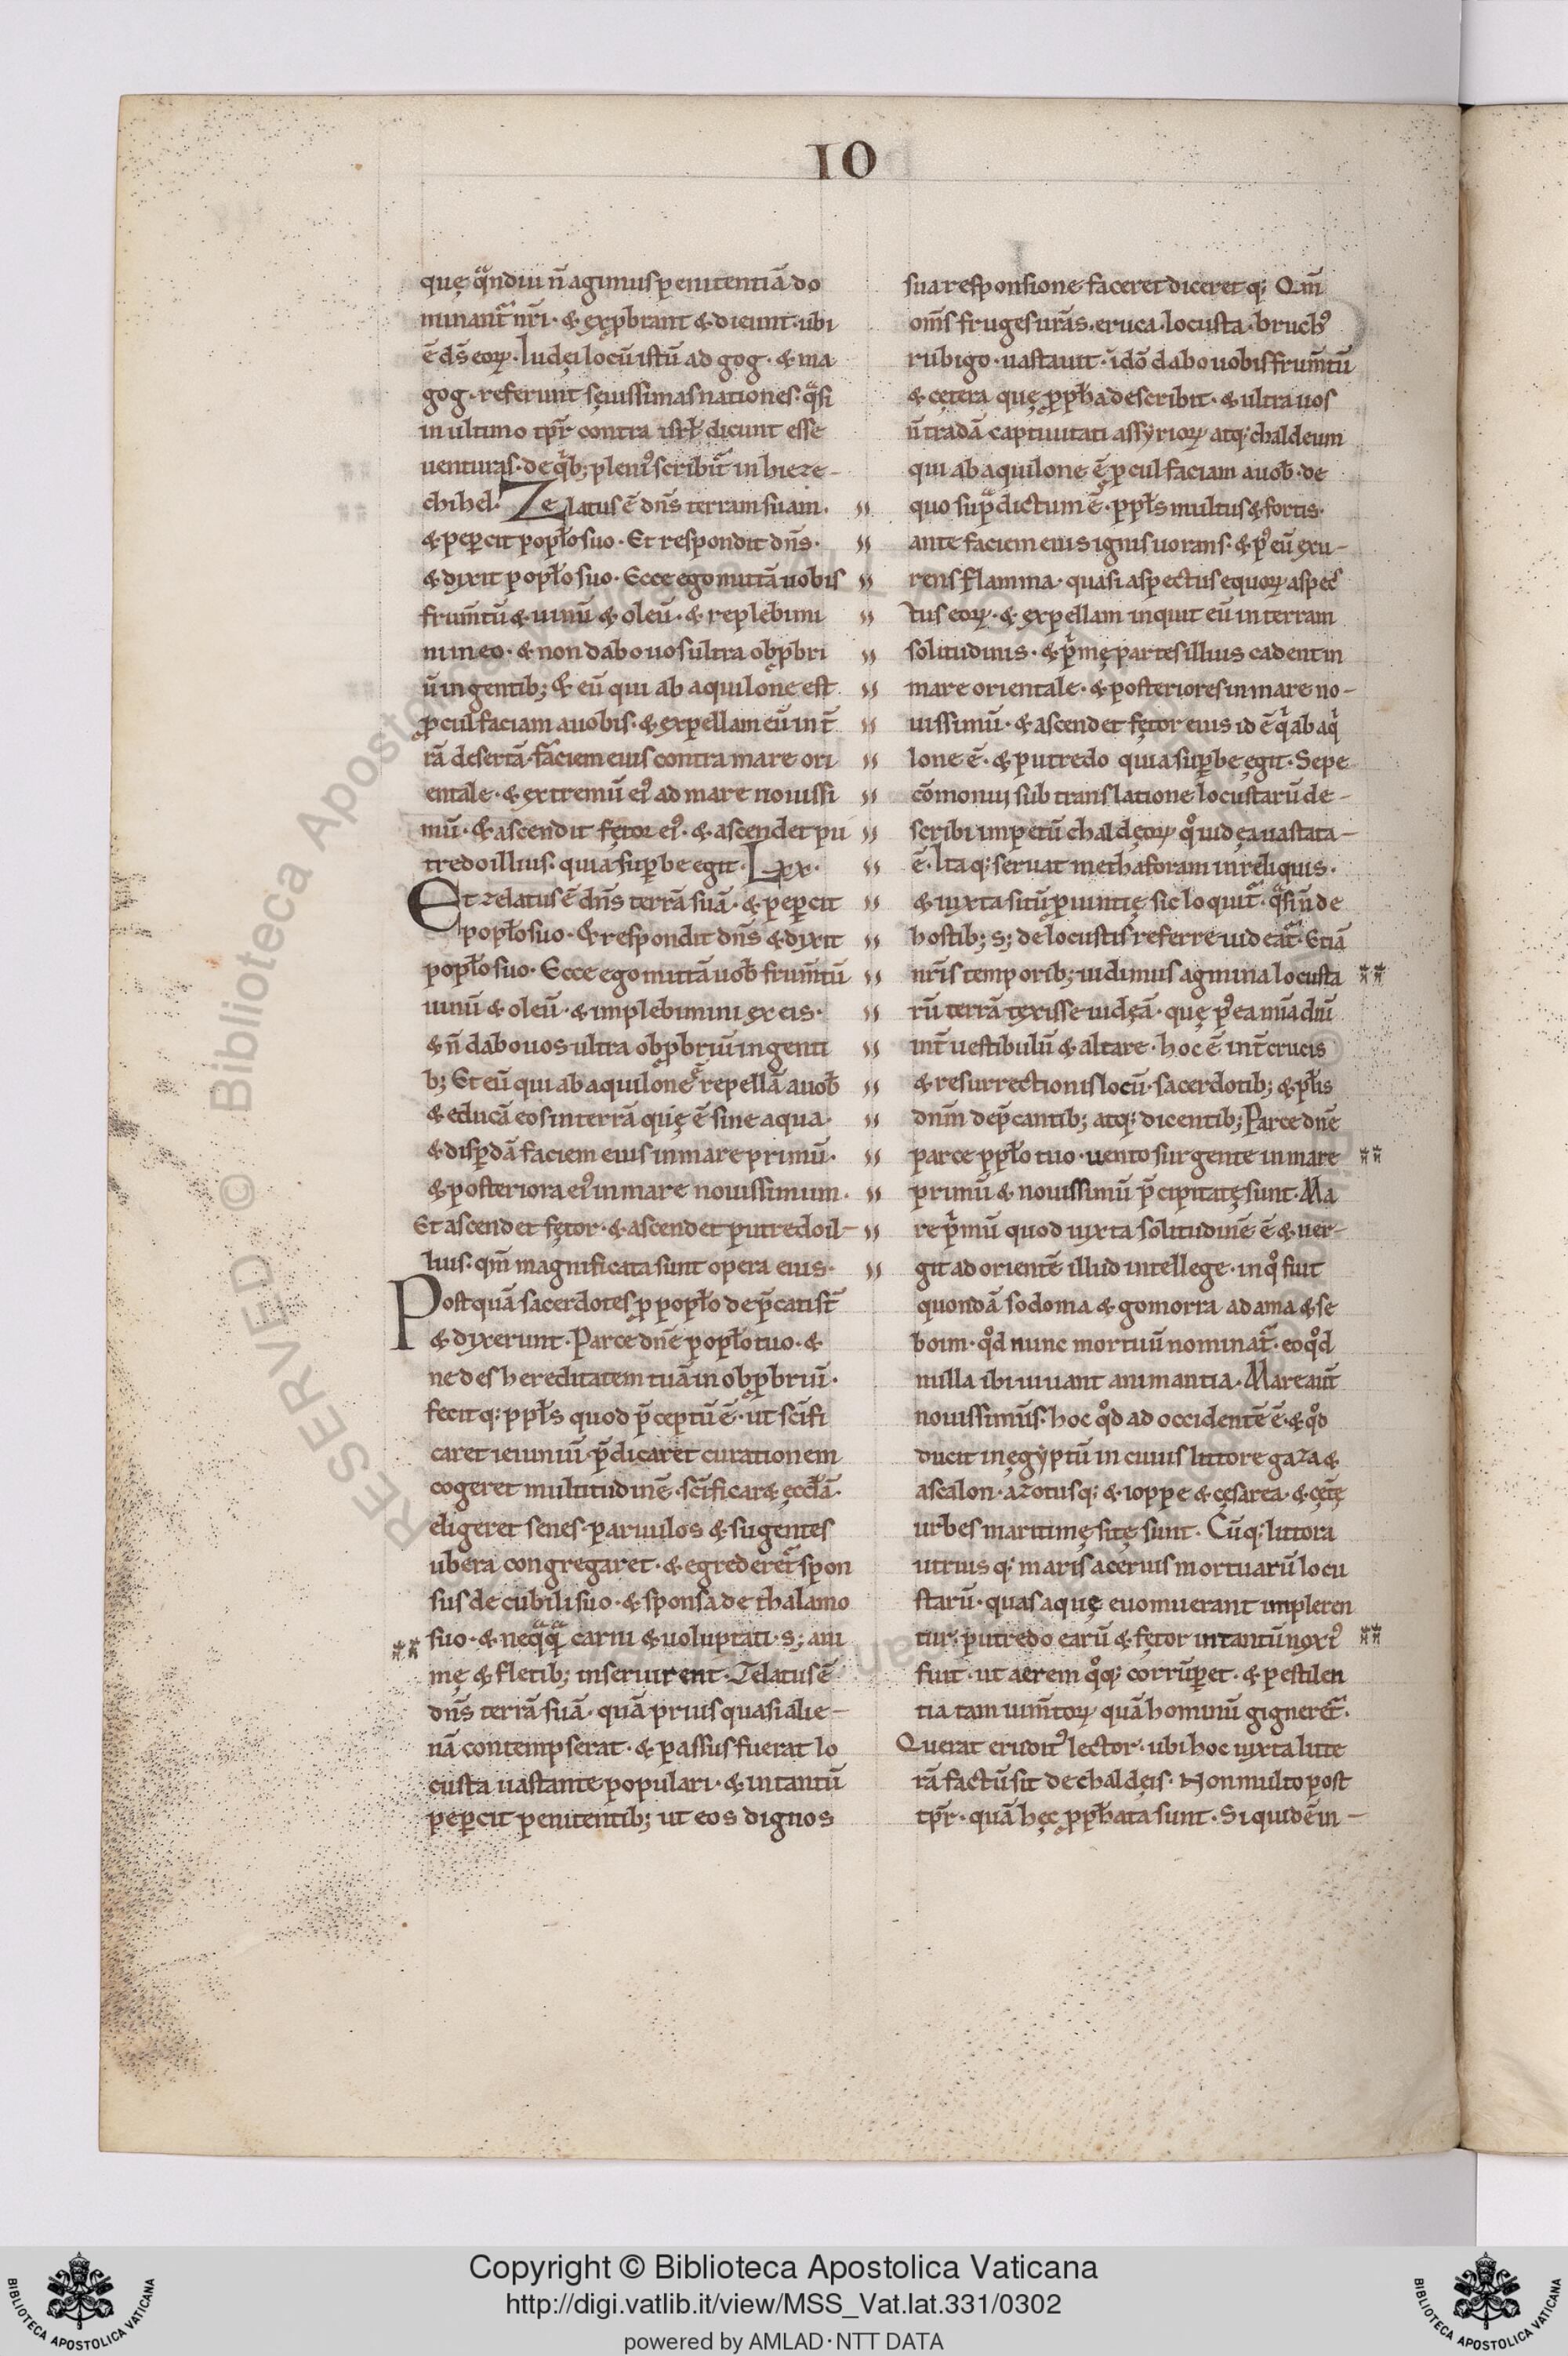 IO
quę q̃ndiu ñ agimus penitentiã do
minant̃ nr̃i · & exp̱brant & dicunt · ubi
ẽ ds̃ eoꝝ · Iudęi locũ istũ ad gog · & ma
gog · referunt sęuissimas nationes · q̃si
in ultimo tp̃r contra isrł dicunt esse
uenturas · de q'b; pleniꝰ scribit̃ in hieze-
chihel · Zelatus ẽ dñs terram suam ·
& peꝑcit popło suo · Et respondit dñs ·
& dixit popło suo · Ecce ego mittã uobis
frum̃tũ & uinũ & oleũ · & replebimi
ni in eo · & non dabo uos ultra obꝓbri
ũ in gentib; & eũ qui ab aquilone est
ꝓcul faciam a uobis · & expellam eũ in t̃
rã desertã · faciem eius contra mare ori
entale · & extremũ eiꝰ ad mare nouissi
mũ · & ascendit fętor eiꝰ · & ascendet pu
tredo illius · quia suꝑbe egit · Lxx ·
Et zelatus ẽ dñs terrã suã · & peꝑcit
popło suo · & respondit dñs & dixit
popło suo · Ecce ego mittã uob̃ frum̃tũ
uinũ & oleũ · & implebimini ex eis ·
& ñ dabo uos ultra obꝓbriũ in genti
b; Et eũ qui ab aquilone ẽ repellã a uob̃
& educã eos in terrã quę ẽ sine aqua ·
& disꝑdã faciem eius in mare primũ ·
& posteriora eiꝰ in mare nouissimum ·
Et ascendet fętor · & ascendet putredo il-
lius · qm̃ magnificata sunt opera eius ·
Postquã sacerdotes ꝓ popło dep̃cati st̃
& dixerunt · Parce dñe popło tuo · &
ne des hereditatem tuã in obꝓbriũ ·
fecit q; ppłs quod p̃ceptũ ẽ · ut sc̃ifi
caret ieiuniũ · p̃dicaret curationem
cogeret multitudinẽ · sc̃ificaret ęccłã ·
eligeret senes · paruulos & sugentes
ubera congregaret · & egrederet̃ spon
sus de cubili suo · & sponsa de thalamo
suo · & neq̃q̃ carni & uoluptati · s; ani
mę & fletib; inseruirent · Zelatus ẽ
dñs terrã suã · quã prius quasi alie-
nã contempserat · & passus fuerat lo
custa uastante populari · & in tantũ
peꝑcit penitentib; ut eos dignos
sua responsione faceret diceret q; Qm̃
om̃s fruges ur̃as · eruca · locusta · bruchꝰ
rubigo · uastauit · idõ dabo uobis frum̃tũ
& cętera quę ꝓph̃a describit · & ultra uos
ñ tradã captiuitati assyrioꝝ atq; chaldeum
qui ab aquilone ẽ ꝓcul faciam a uob̃ · de
quo sup̃ dictum ẽ · ppłs multus & fortis ·
ante faciem eius ignis uorans · & pꝰ eũ exu-
rens flamma · quasi aspectus equoꝝ aspec
tus eoꝝ · & expellam inquit eũ in terram
solitudinis · & p'mę partes illius cadent in
mare orientale · & posteriores in mare no-
uissimũ · & ascendet fętor eius id ẽ q' ab aq'
lone ẽ · & putredo quia suꝑbe ęgit · Sepe
cõmonui sub translatione locustarũ de-
scribi impetũ chaldęoꝝ q° iudęa uastata-
ẽ · Itaq; seruat methaforam in reliquis ·
& iuxta situ ꝓuintię sic loquit̃ · q̃si ñ de
hostib; s; de locustis referre uideat̃ · Etiã
nr̃is temporib; uidimus agmina locusta
rũ terrã texisse iudęã · quę pꝰea mĩa dñi
int̃ uestibulũ & altare · hoc ẽ int̃ crucis
& resurrectionis locũ · sacerdotib; & płis
dnm̃ dep̃cantib; atq; dicentib; Parce dñe
parce ppło tuo · uento surgente in mare
primũ & nouissimũ p̃cipitatę sunt · Ma
re p'mũ quod iuxta solitudinẽ ẽ & uer-
git ad orientẽ illud intellege · in q° fuit
quondã sodoma & gomorra adama & se
boim · q°d nunc mortuũ nominat̃ · eo q°d
nulla ibi uiuant animantia · Mare aut̃
nouissimũs · hoc q°d ad occidentẽ ẽ · & q°d
ducit in ęgyptũ in cuius littore gaza &
ascalon · azotusq; & ioppe & cęsarea · & cętę
urbes maritimę sitę sunt · Cũq; littora
utrius q; maris aceruis mortuarũ locu
starũ · quas aquę euomuerant impleren
tur · putredo earũ & fętor in tantũ noxiꝰ
fuit · ut aerem q°q; corrũꝑet · & pestilen
tia tam ium̃toꝝ quã hominũ gigneret̃ ·
Querat eruditꝰ lector · ubi hoc iuxta litte
rã factũ sit de chaldęis · Non multo post
tp̃r · quã hęc ꝓph̃ata sunt · Siquidẽ in-
RESERVED © Biblioteca Apostolica Vaticana
Copyright © Biblioteca Apostolica Vaticana
http://digi.vatlib.it/view/MSS_Vat.lat.331/0302
powered by AMLAD·NTT DATA
BIBLIOTECA APOSTOLICA VATICANA
BIBLIOTECA APOSTOLICA VATICANA